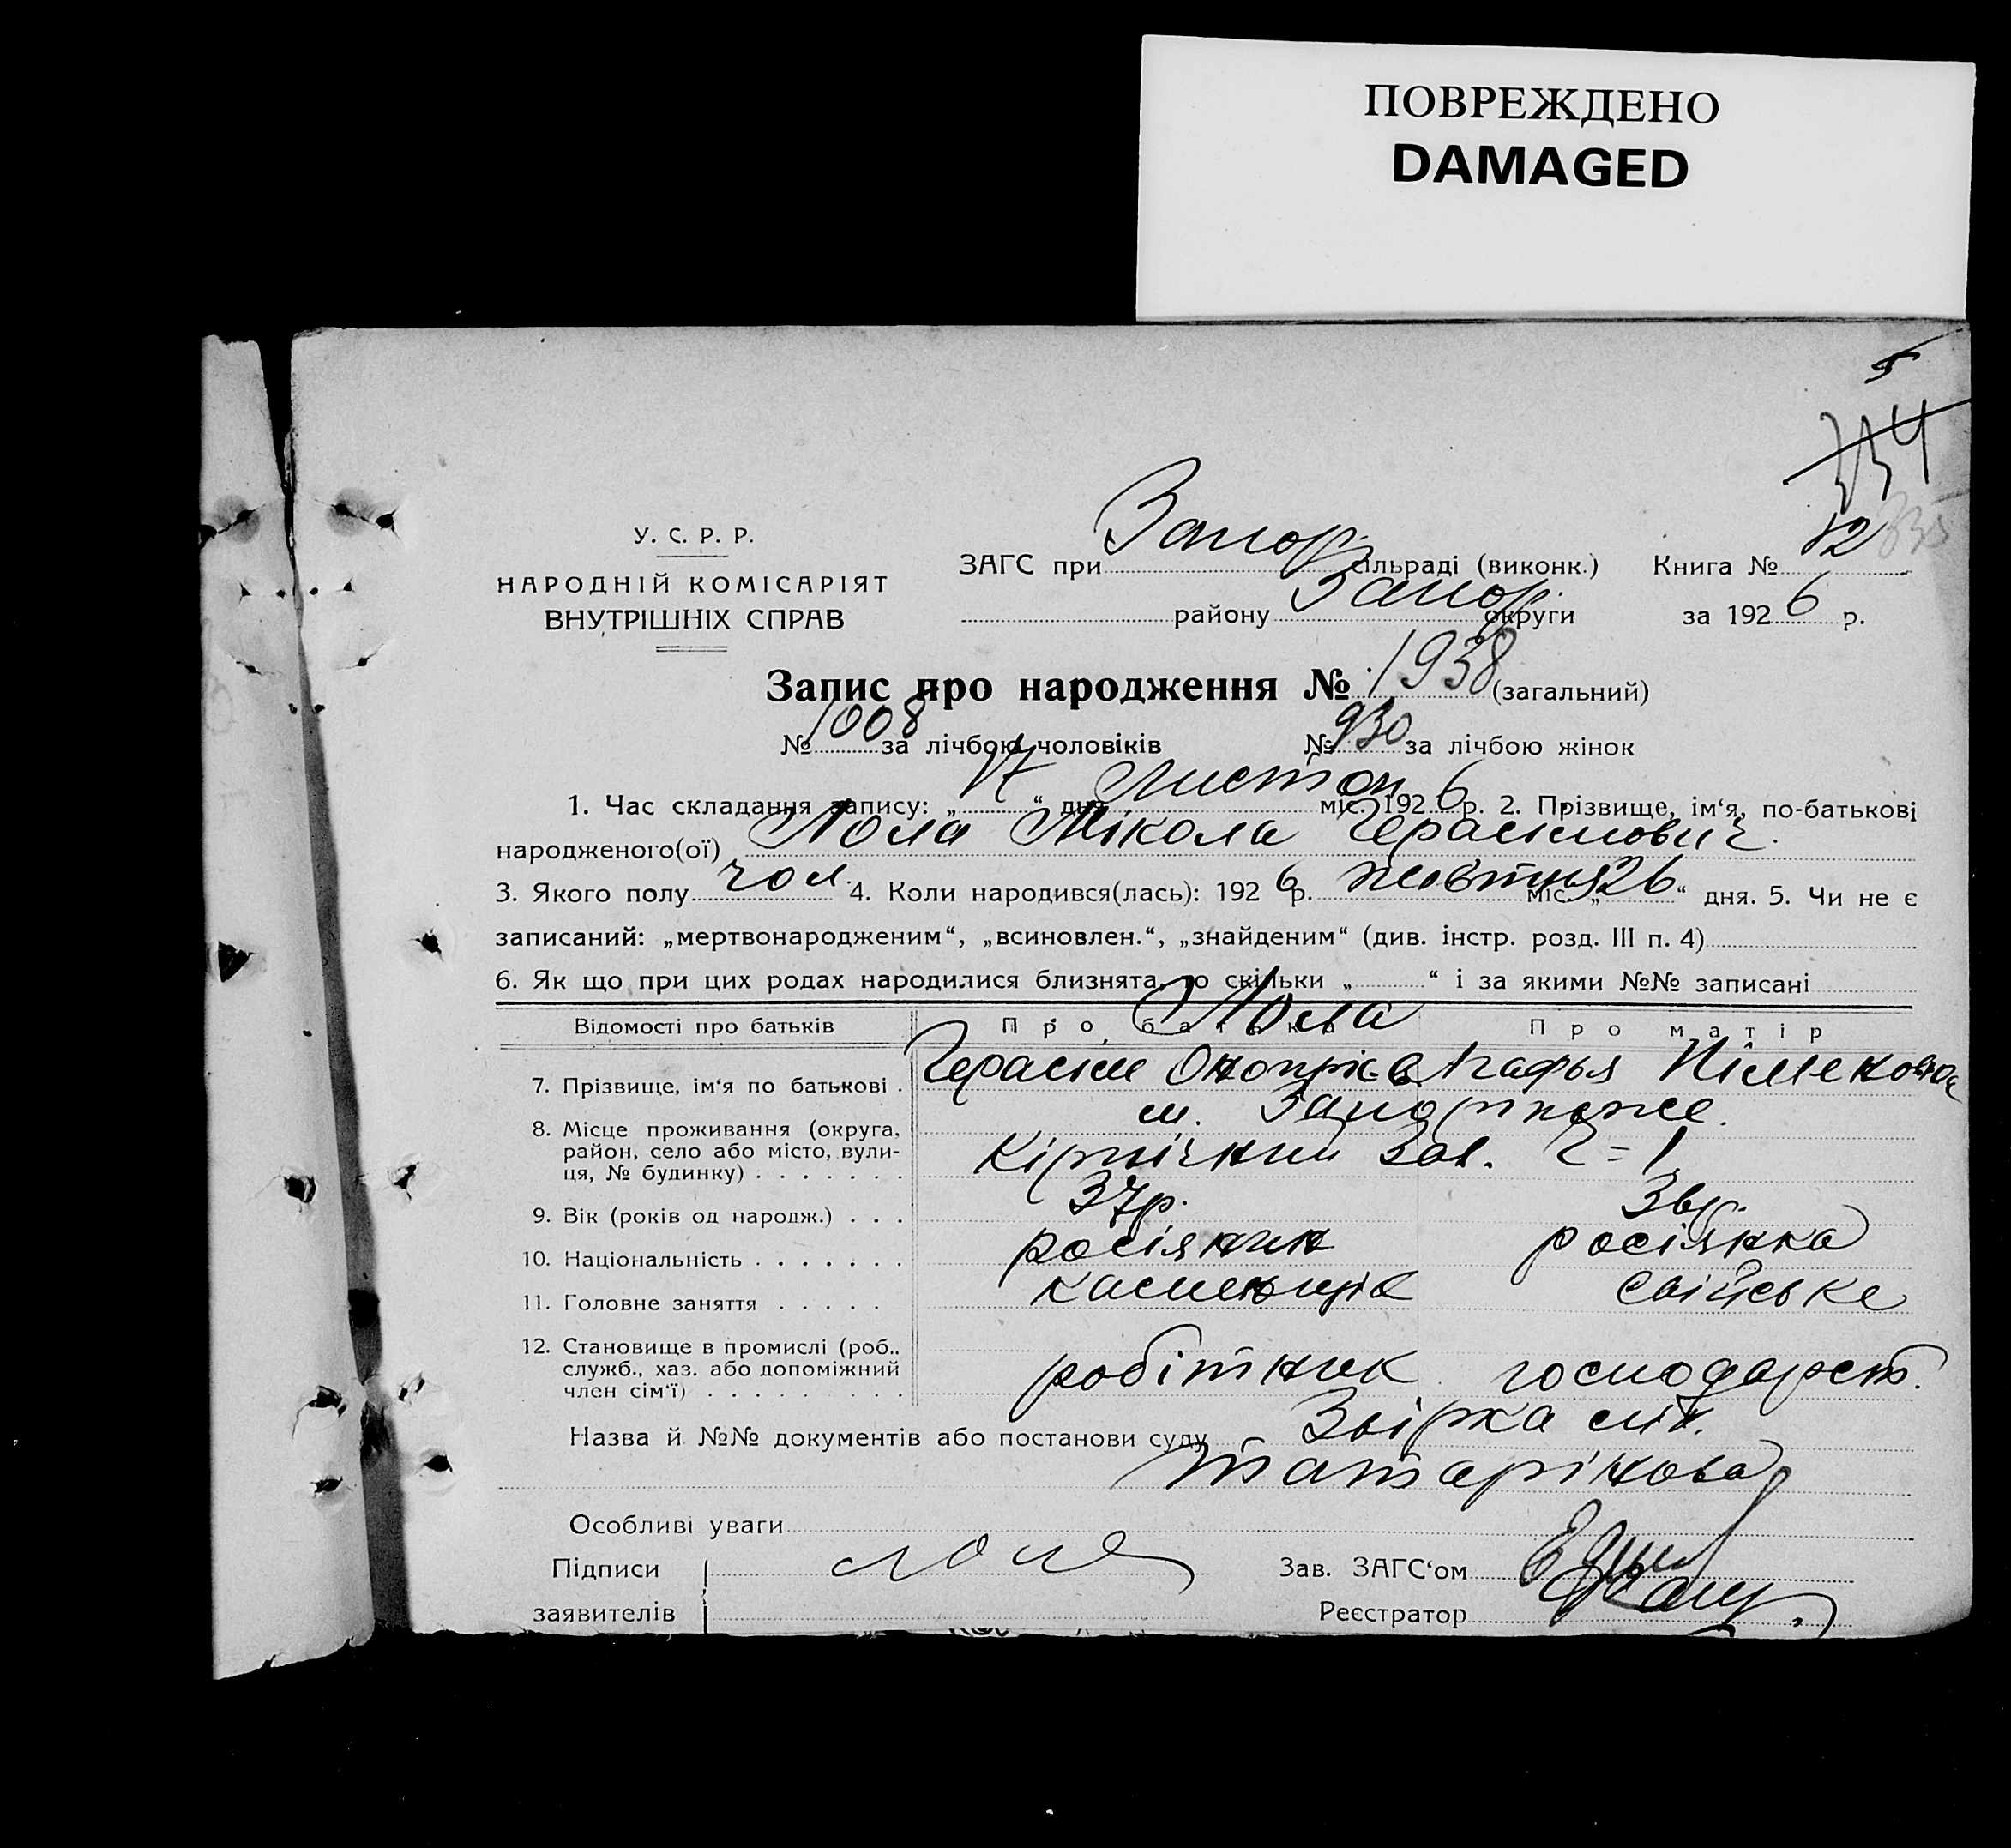 ПОВРЕЖДЕНО
DAMAGED
5
334
335
У. С. Р. Р.
НАРОДНІЙ КОМІСАРІЯТ
ВНУТРІШНІХ СПРАВ
ЗАГС при Запор. сільраді (виконк.) Книга № 12
району Запор. округи за 1926 р.
Запис про народження № 1938 (загальний)
№ 1008 за лічбою чоловіків № 930 за лічбою жінок
1. Час складання запису: „17“ дня Листоп міс. 1926 р. 2. Прізвище, ім‘я, по-батькові
народженого(ої) Лола Мікола Герасімовіч.
3. Якого полу чол. 4. Коли народився(лась): 1926 р. жовтня міс. „26“ дня. 5. Чи не є
записаний: „мертвонародженим“, „всиновлен.“, „знайденим“ (див. інстр. розд. III п. 4)
6. Як що при цих родах народилися близнята, то скільки „ “ і за якими №№ записані
Відомості про батьків Про батька Про матір
Лола
7. Прізвище, ім‘я по батькові . Герасім Онопріев Агафья
8. Місце проживання (округа, район, село або місто, вулиця, № будинку) м. Запоріжже.
Кірпічний зав. ч=1
9. Вік (років од народж.) . . . 37р. 36р.
10. Національність . . . . . . . росіянин росіянка
11. Головне заняття . . . . . каменщів свійське
12. Становище в промислі (роб.. служб., хаз. або допоміжний член сім‘ї) робітник господарст.
Назва й №№ документів або постанови суду Звірка
Татарінова
Особливі уваги
Підписи Лола Зав. ЗАГС‘ом
заявителів Реєстратор